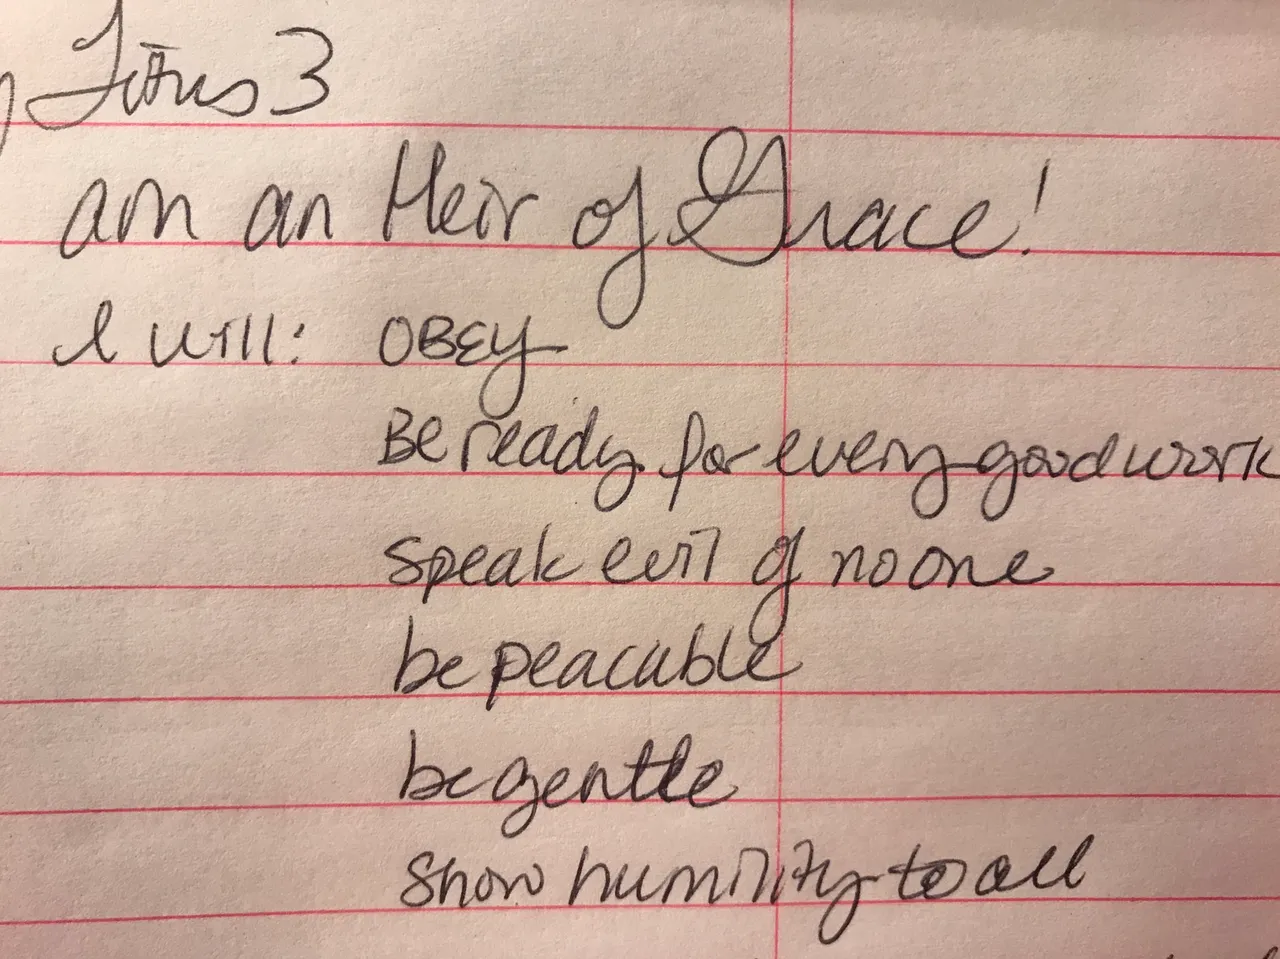 Titus 3
am an Heir of Grace!
I will: OBEY
Be ready for every good work
Speak evil of no one
be peacable
be gentle
Show humility to all